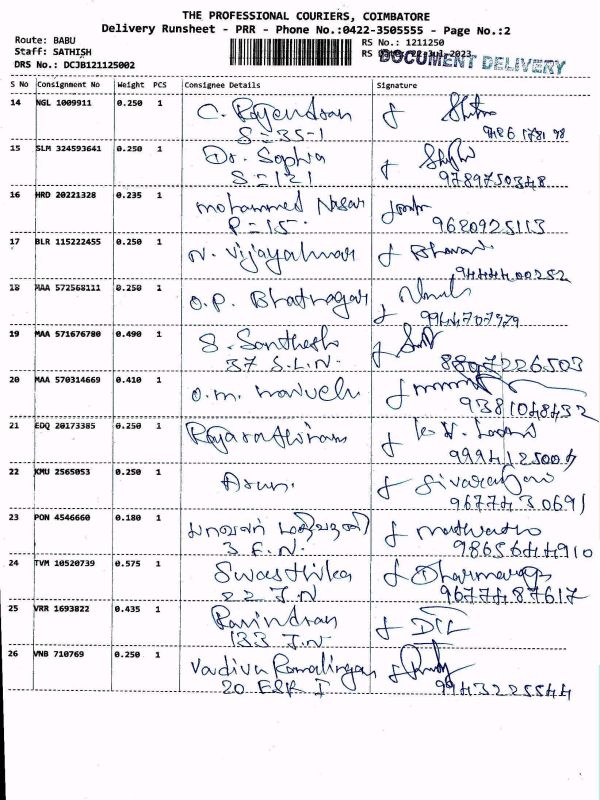 THE PROFESSIONAL COURIERS, COIMBATORE
Delivery Runsheet - PRR - Phone No.:0422-3505555 - Page No.:2
Route: BABU
RS No.: 1211250
Staff: SATHISH
RS Date: 22-Jul-2023
DOCUMENT DELIVERY
DRS No.: DCJB121125002
S No Consignment No Weight PCS Consignee Details Signature
14 NGL 1009911 0.250 1 C. Rajendran
S=35-1
15 SLM 324593641 0.250 1 Dr. Sophia
S=121 9789750348
16 HRD 20221328 0.235 1 mohammed Nasar
P=15 9620925113
17 BLR 115222455 0.250 1 N. Vijayakumar Bhavani
9444400252
18 MAA 572568111 0.250 1 O.P. Bhatnagar
9944707979
19 MAA 571676780 0.490 1 S. Santhosh
37 S.L.N. 8807226503
20 MAA 570314669 0.410 1 O.M.
9381048432
21 EDQ 20173385 0.250 1 Rajarathinam
22 KMU 2565053 0.250 1 Arun.
9677430691
23 PON 4546660 0.180 1
3.F.N. 9865644910
24 TVM 10520739 0.575 1 Swasthika Dharmaraj
22 J.N 9677487617
25 VRR 1693822 0.435 1 Ravindran
133 J.N
26 VNB 710769 0.250 1 Vadiva Ramalingam
20 ESR I 9943225544